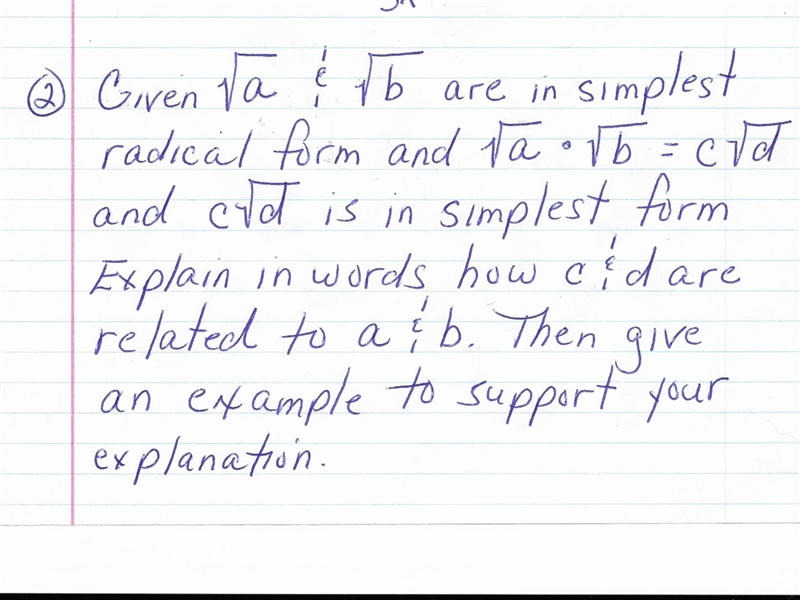 ② Given √a & √b are in simplest
radical form and √a · √b = c√d
and c√d is in simplest form
Explain in words how c & d are
related to a & b. Then give
an example to support your
explanation.